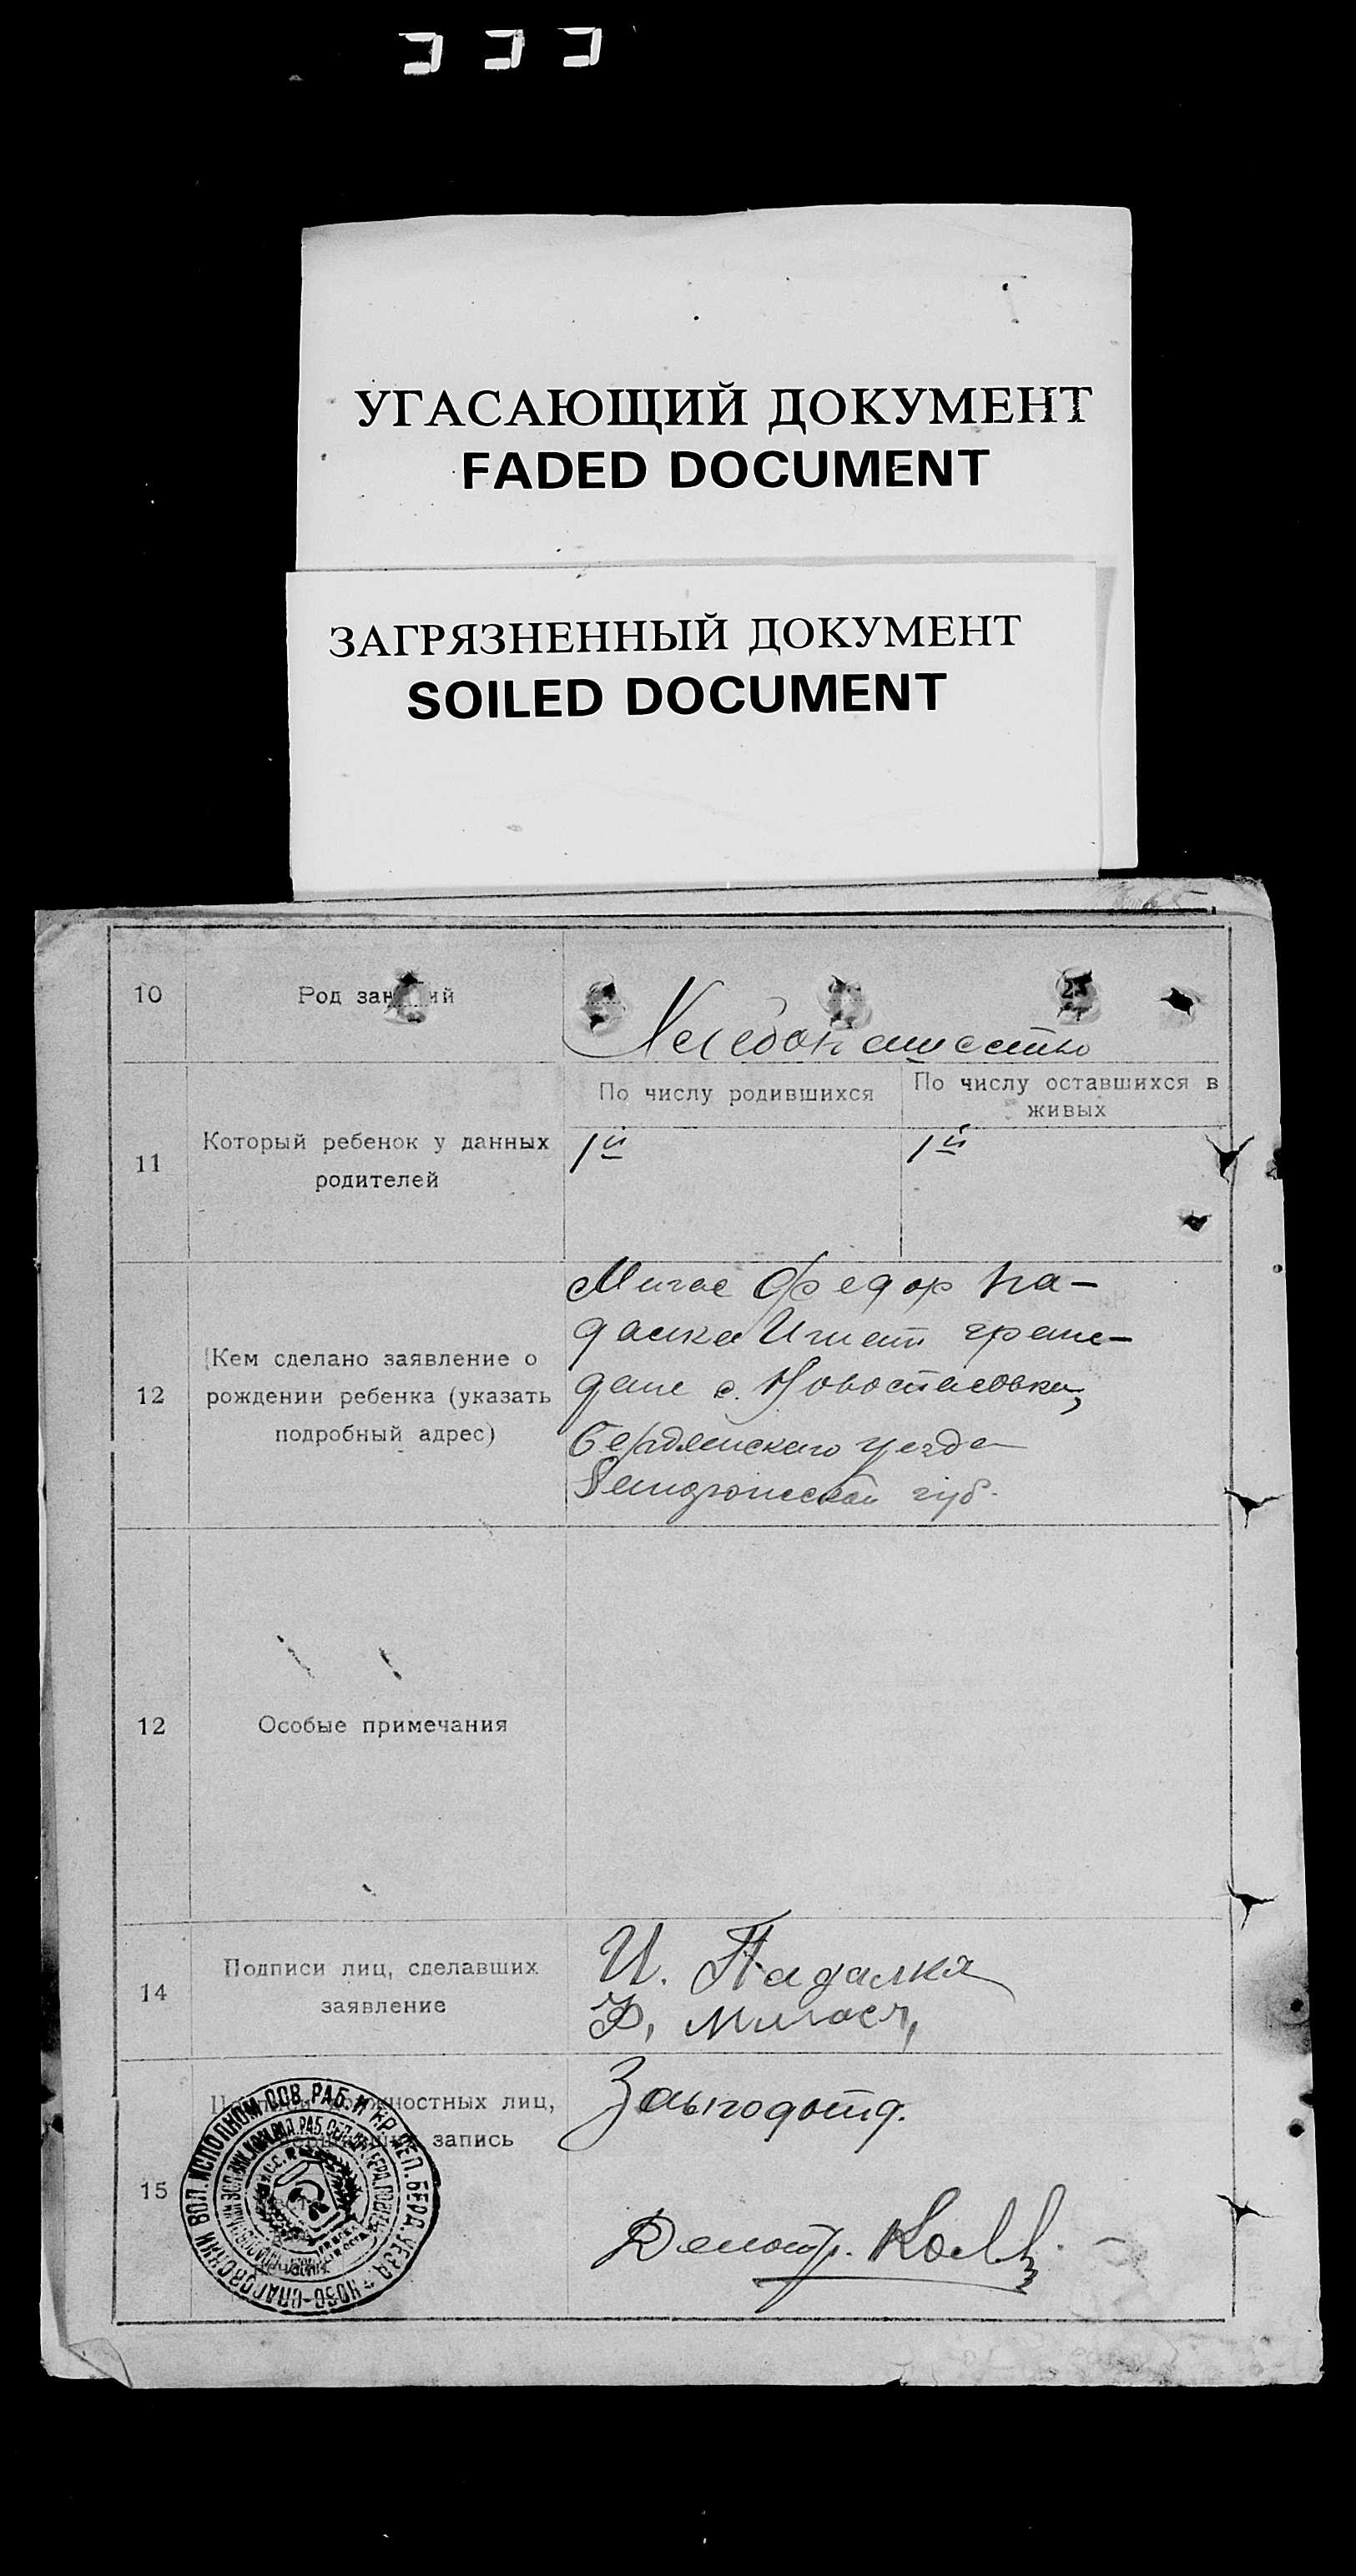 УГАСАЮЩИЙ ДОКУМЕНТ
FADED DOCUMENT
ЗАГРЯЗНЕННЫЙ ДОКУМЕНТ
SOILED DOCUMENT
10 Род зан ий
По числу родившихся
По числу оставшихся в
живых
11
Который ребенок у данных
родителей
1й
1й
12
Кем сделано заявление о
рождении ребенка (указать
подробный адрес)
Мигас Федор Па-
далка Игнат граж-
дане с. Новоспасовки,
Бердянского уезда
губ.
12 Особые примечания
14
Подписи лиц, сделавших
заявление
И. Падалка
Ф. Мигас
15
ностных лиц,
запись
Завподотд.
Делопр.
ИСПОЛНОМ СОВ. РАБ. И КР. ДЕП. БЕРД. УЕЗДА НОВО-СПАСОВСКИЙ ВОЛ.